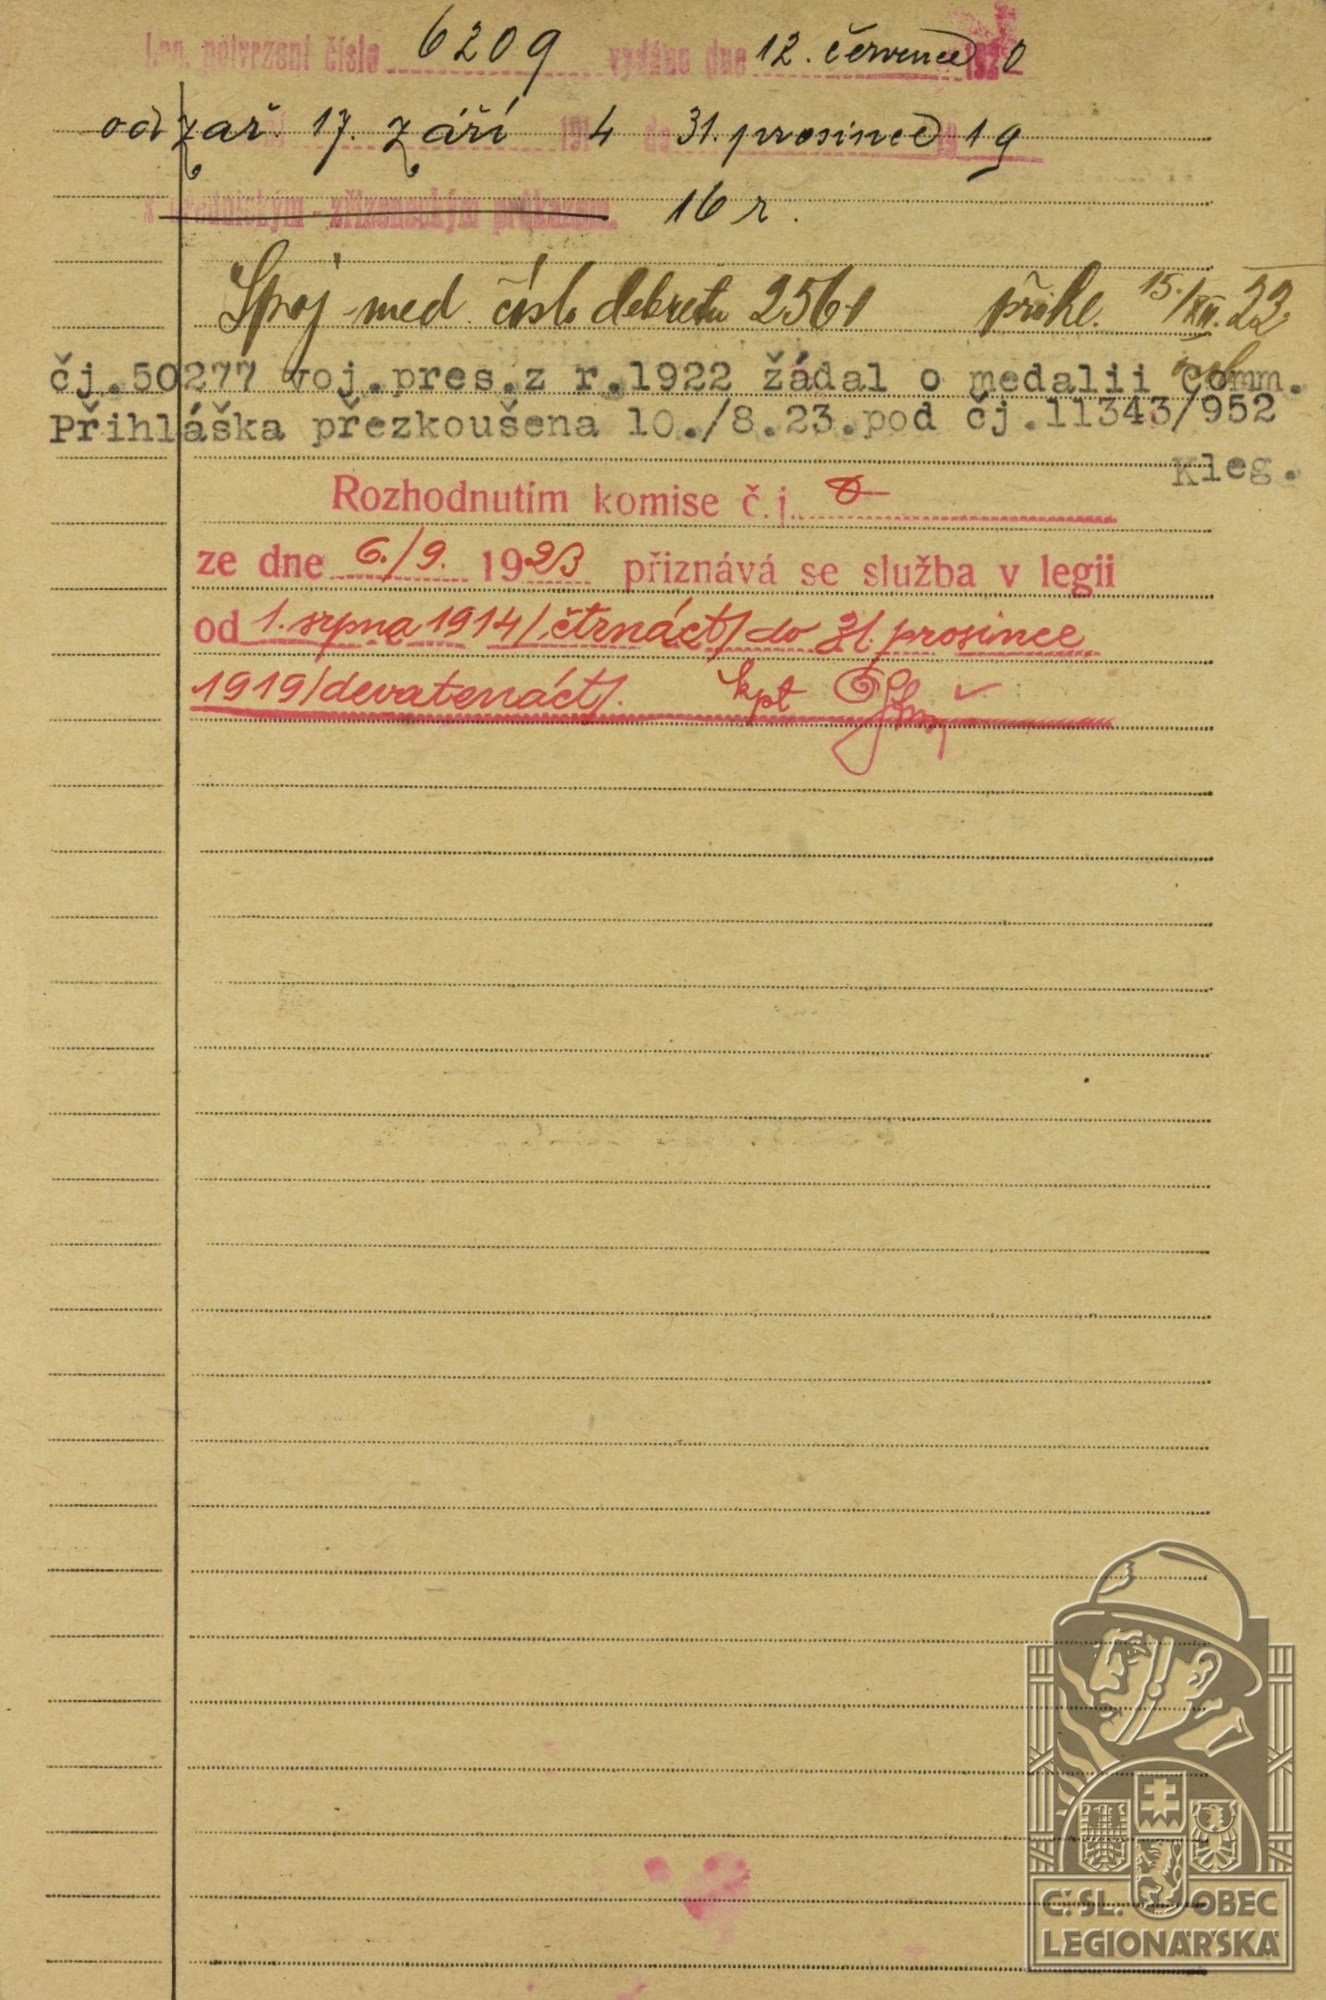 Leg. potvrzení číslo 6209 vydáno dne 12. července 1920
od zař. 17. září 1914 do 31. prosince 19
úřednickým - zřízeneckým průkazem. 16 r.
Spoj. med. číslo dekretu 2561 přihl. 15./XII. 22.
čj.50277 voj.pres.z r.1922 žádal o medalii comm.
Přihláška přezkoušena 10./8.23.pod čj.11343/952
Kleg.
Rozhodnutím komise č. j.
ze dne 6./9. 1923 přiznává se služba v legii
od 1. srpna 1914 /čtrnáct/ do 31. prosince
1919 /devatenáct/. kpt
Č.SL. OBEC
LEGIONÁŘSKÁ